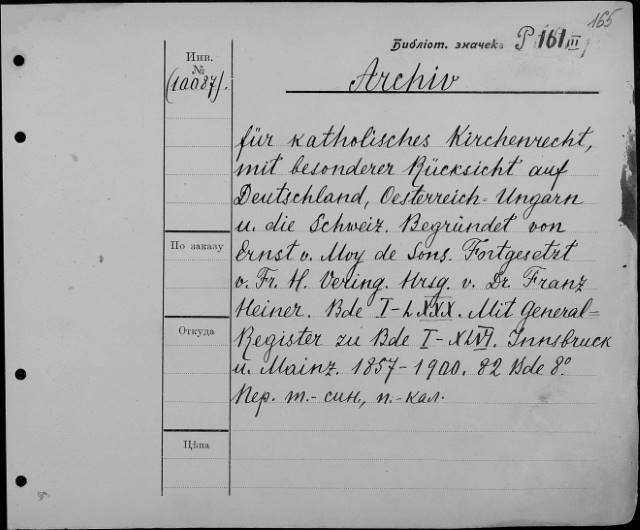 165
Библіот. значекъ P 161 III
Инв.
№
(10087).
Archiv
für katholisches Kirchenrecht,
mit besonderer Rücksicht auf
Deutschland, Oesterreich-Ungarn
u. die Schweiz. Begründet von
Ernst v. Moy de Sons. Fortgesetzt
v. Fr. H. Vering. Hrsg. v. Dr. Franz
Heiner. Bde I-LXXX. Mit General=
Register zu Bde I-XLVI. Innsbruck
u. Mainz. 1857-1900. 82 Bde 8º
Пер. т.- син., п.- кал.
По заказу
Откуда
Цѣна